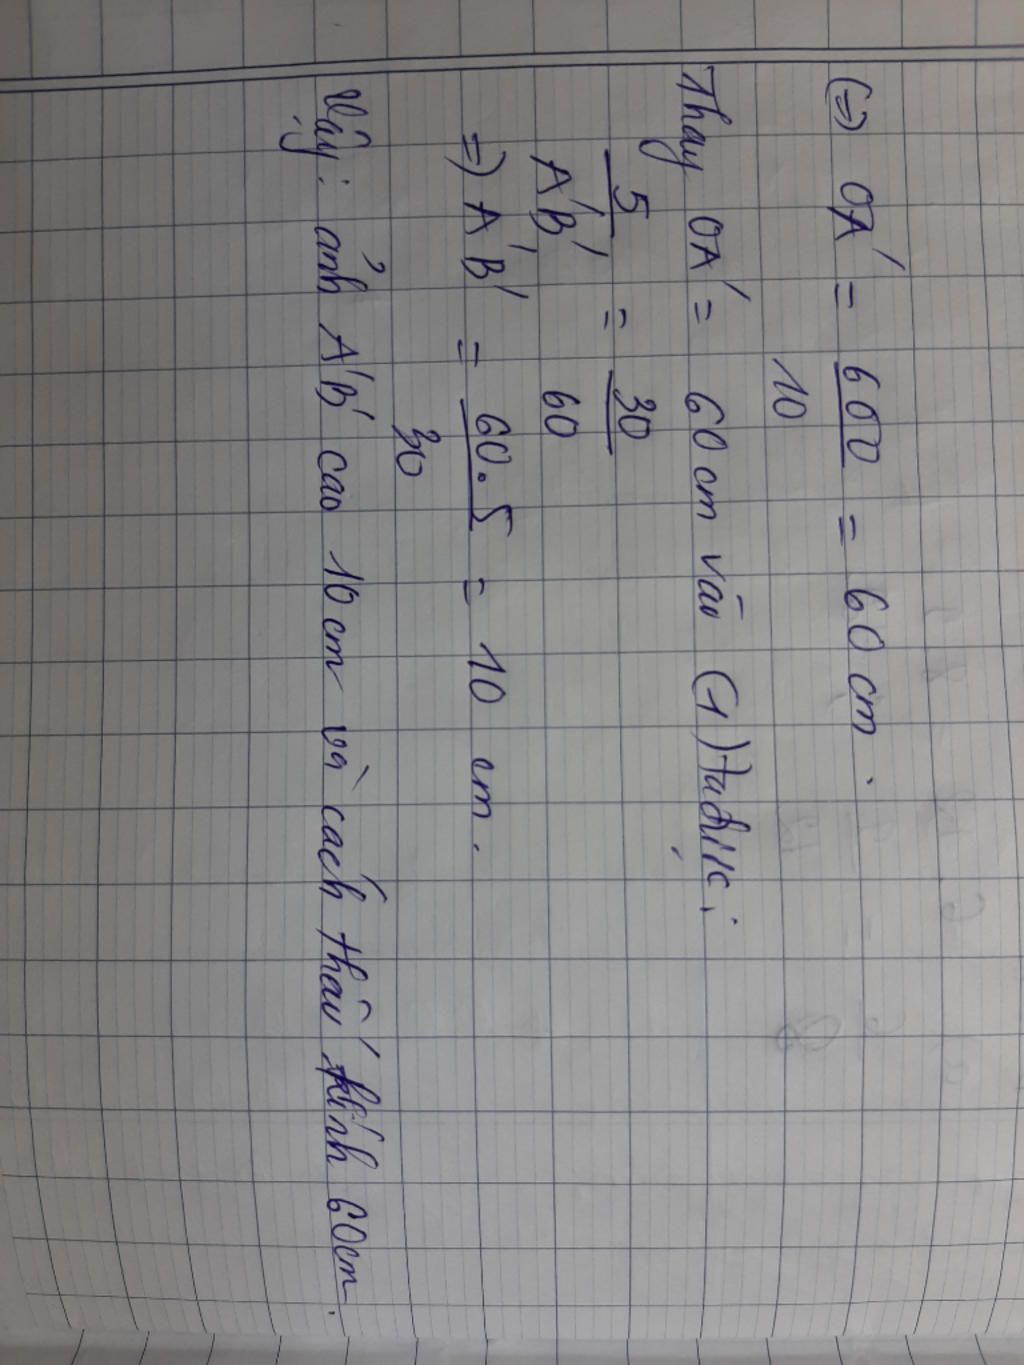 (=) OA' = 600 = 60 cm.
10
Thay OA' = 60 cm vào (1) ta được:
5 = 30
A'B' 60
=) A'B' = 60.5 = 10 cm.
30
Vậy: ảnh A'B' cao 10 cm và cách thấu kính 60cm.